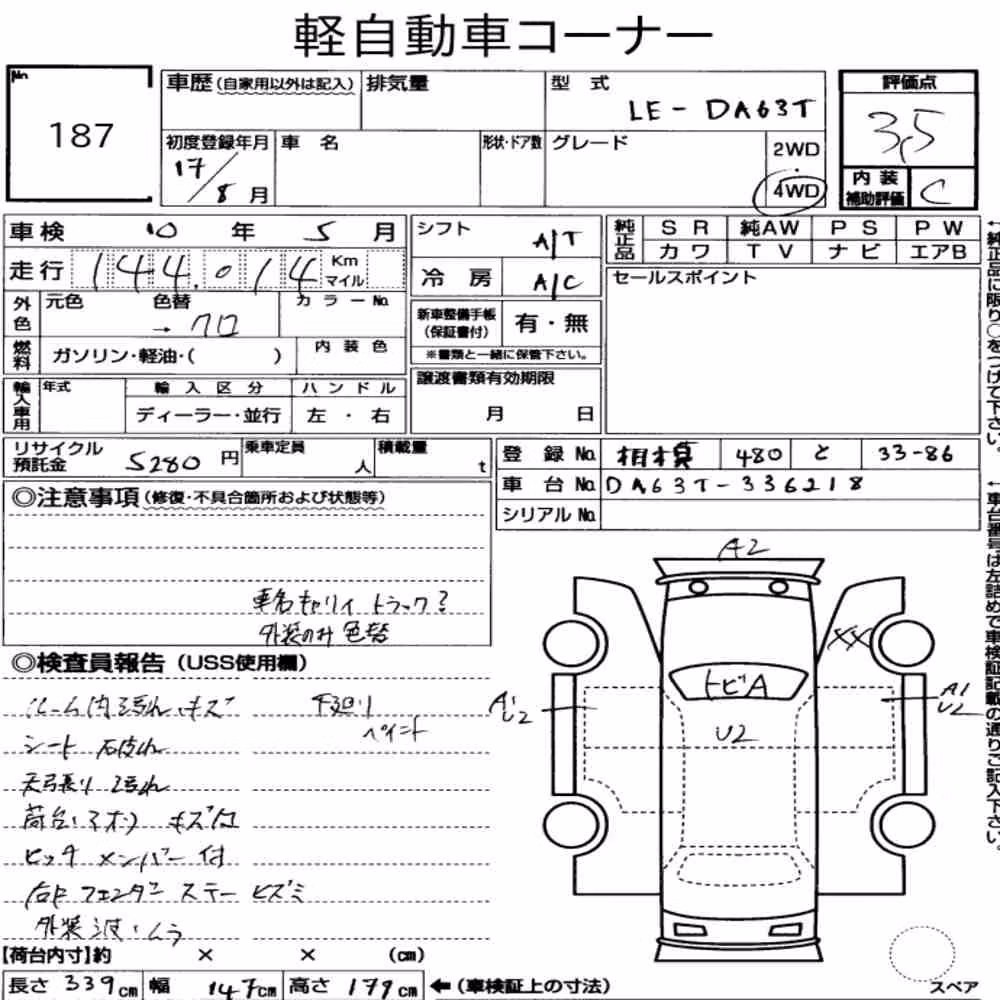 軽自動車コーナー
No. 187
車歴(自家用以外は記入) 排気量 型式 LE-DA63T
評価点 3,5
初度登録年月 17/8月 車名 形状・ドア数 グレード 2WD 4WD
内装補助評価 C
車検 10年 5月
走行 144.014 Km マイル
外色 元色 色替 →クロ カラーNo.
燃料 ガソリン・軽油・( ) 内装色
輸入車用 年式 輸入区分 ディーラー・並行 ハンドル 左・右
シフト A/T
冷房 A/C
新車整備手帳(保証書付) 有・無
※書類と一緒に保管下さい。
譲渡書類有効期限
月 日
純正品 SR 純AW PS PW
カワ TV ナビ エアB
セールスポイント
←純正品に限り○をつけて下さい。
リサイクル預託金 5280円 乗車定員 人 積載量 t
登録No. 相模 480 と 33-86
車台No. DA63T-336218
シリアルNo.
←車台番号は左詰めで車検証記載の通りご記入下さい。
◎注意事項(修復・不具合箇所および状態等)
車名キャリィ トラック?
外装のみ色替
◎検査員報告(USS使用欄)
ルーム内汚れ.キズ 下廻り
ペイント
シート 破れ
天張り 汚れ
荷台・アオリ キズ凹
ヒッチメンバー付
右F フェンダーステー ヒズミ
外装 波・ムラ
A2
XX
トビA
A1
U2
U2
A1
U2
【荷台内寸】約 × × (cm)
長さ 339cm 幅 147cm 高さ 179cm ←(車検証上の寸法)
スペア